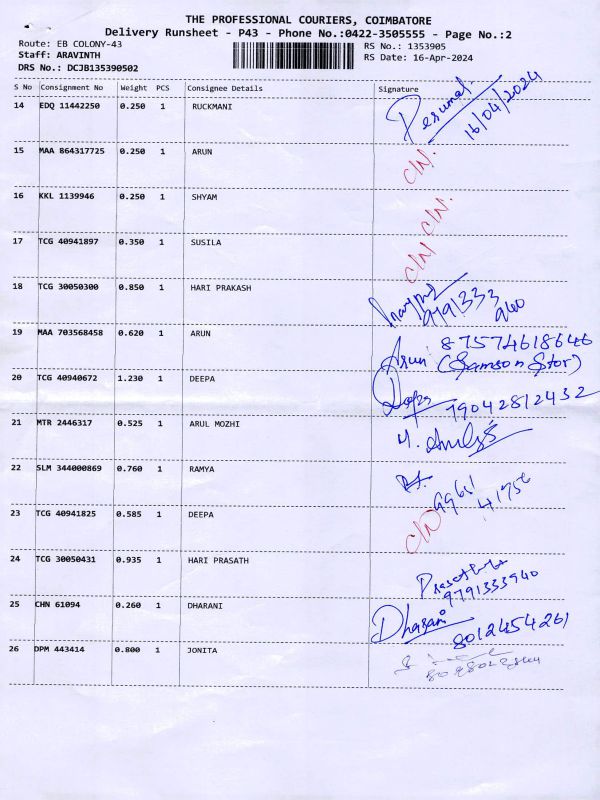 THE PROFESSIONAL COURIERS, COIMBATORE
Delivery Runsheet - P43 - Phone No.:0422-3505555 - Page No.:2
Route: EB COLONY-43 RS No.: 1353905
Staff: ARAVINTH RS Date: 16-Apr-2024
DRS No.: DCJB135390502
S No Consignment No Weight PCS Consignee Details Signature
14 EDQ 11442250 0.250 1 RUCKMANI Perumal 16/04/2024
15 MAA 864317725 0.250 1 ARUN C/N.
16 KKL 1139946 0.250 1 SHYAM C/N.
17 TCG 40941897 0.350 1 SUSILA C/N
18 TCG 30050300 0.850 1 HARI PRAKASH 9791333 940
19 MAA 703568458 0.620 1 ARUN Arun 87574618646 (Samson Stor)
20 TCG 40940672 1.230 1 DEEPA Deepa 19042812432
21 MTR 2446317 0.525 1 ARUL MOZHI
22 SLM 344000869 0.760 1 RAMYA
23 TCG 40941825 0.585 1 DEEPA C/N
24 TCG 30050431 0.935 1 HARI PRASATH 9791333940
25 CHN 61094 0.260 1 DHARANI Dharani 8012454261
26 DPM 443414 0.800 1 JONITA